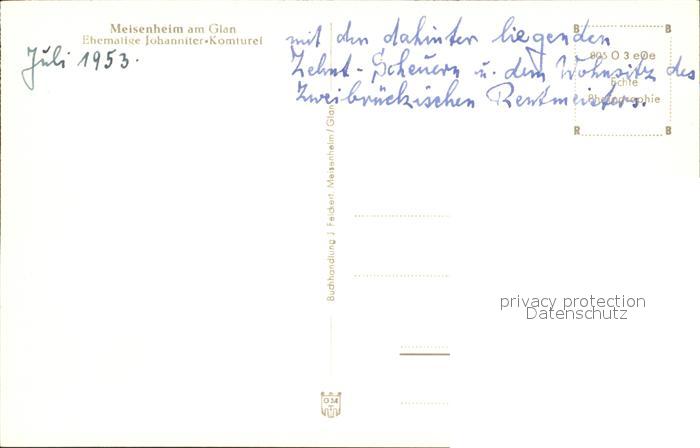 Meisenheim am Glan
Ehematige Johanniter-Komturei
Juli 1953.
mit den dahinter liegenden
Zehnt-Scheuern u. dem Wohnsitz des
Zweibrückischen Rentmeisters.
B B
805 O 3 eØe
Echte
Photographie
R B
Buchhandlung J. Feickert, Meisenheim/Glan
O 34
privacy protection
Datenschutz